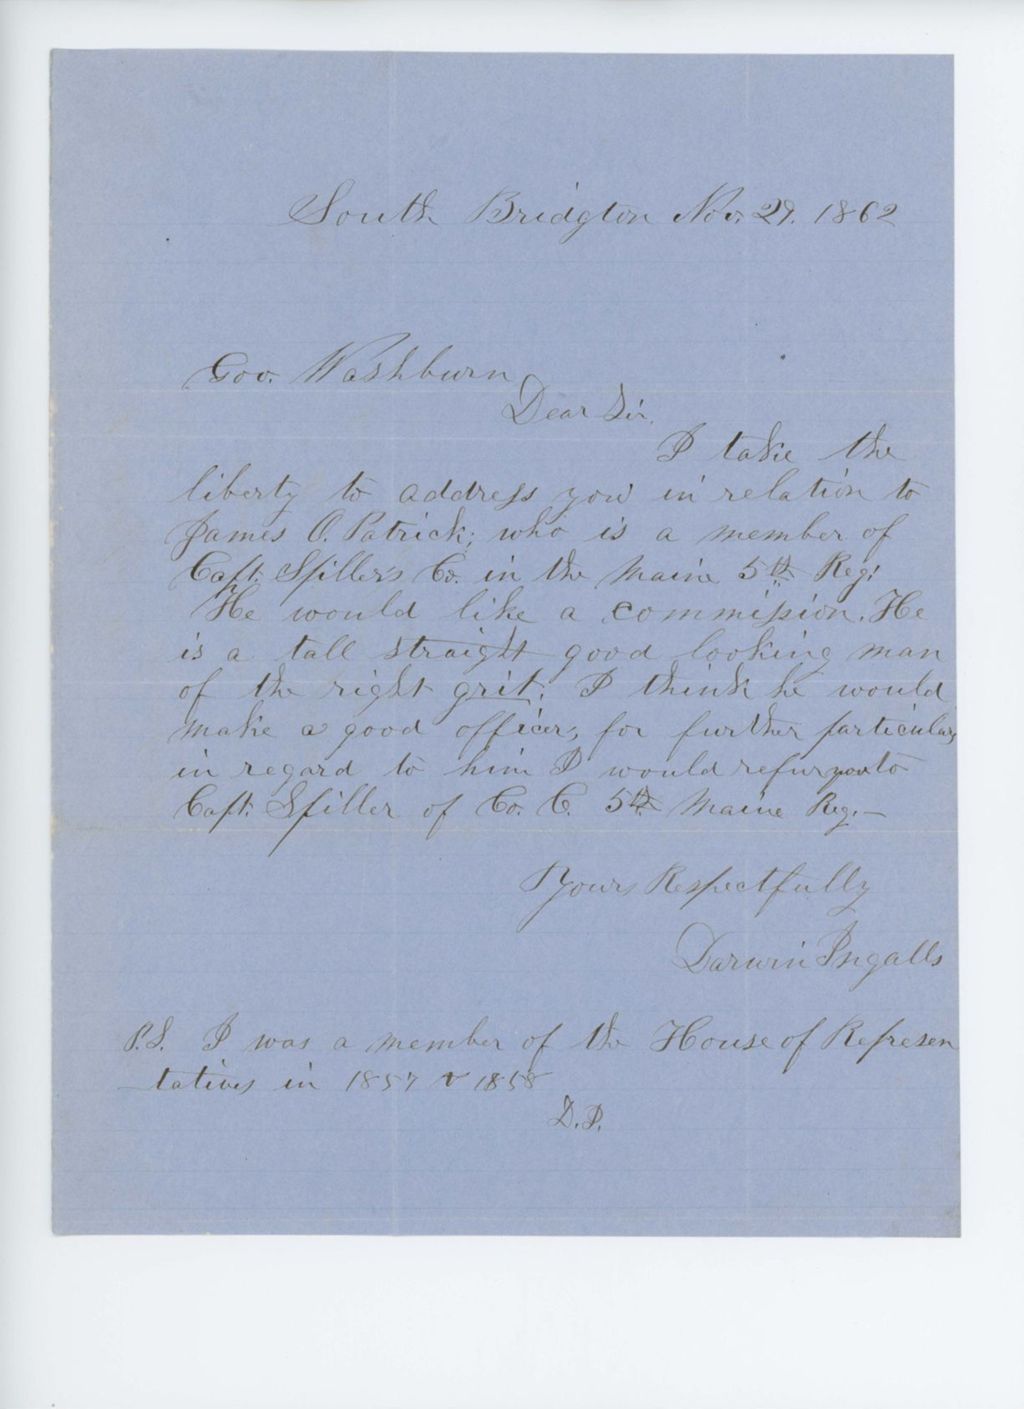 South Bridgton Nov. 29. 1862
Gov. Washburn
Dear Sir,
I take the
liberty to address you in relation to
James O. Patrick; who is a member of
Capt. Spiller's Co. in the Maine 5th Reg;
He would like a commission. He
is a tall straight good looking man
of the right grit; I think he would
make a good officer, for further particulars
in regard to him I would refur you to
Capt. Spiller of Co. C. 5th Maine Reg.—
Yours Respectfully
Darwin Ingalls
P.S. I was a member of the House of Represen
tatives in 1857 & 1858
D.I.